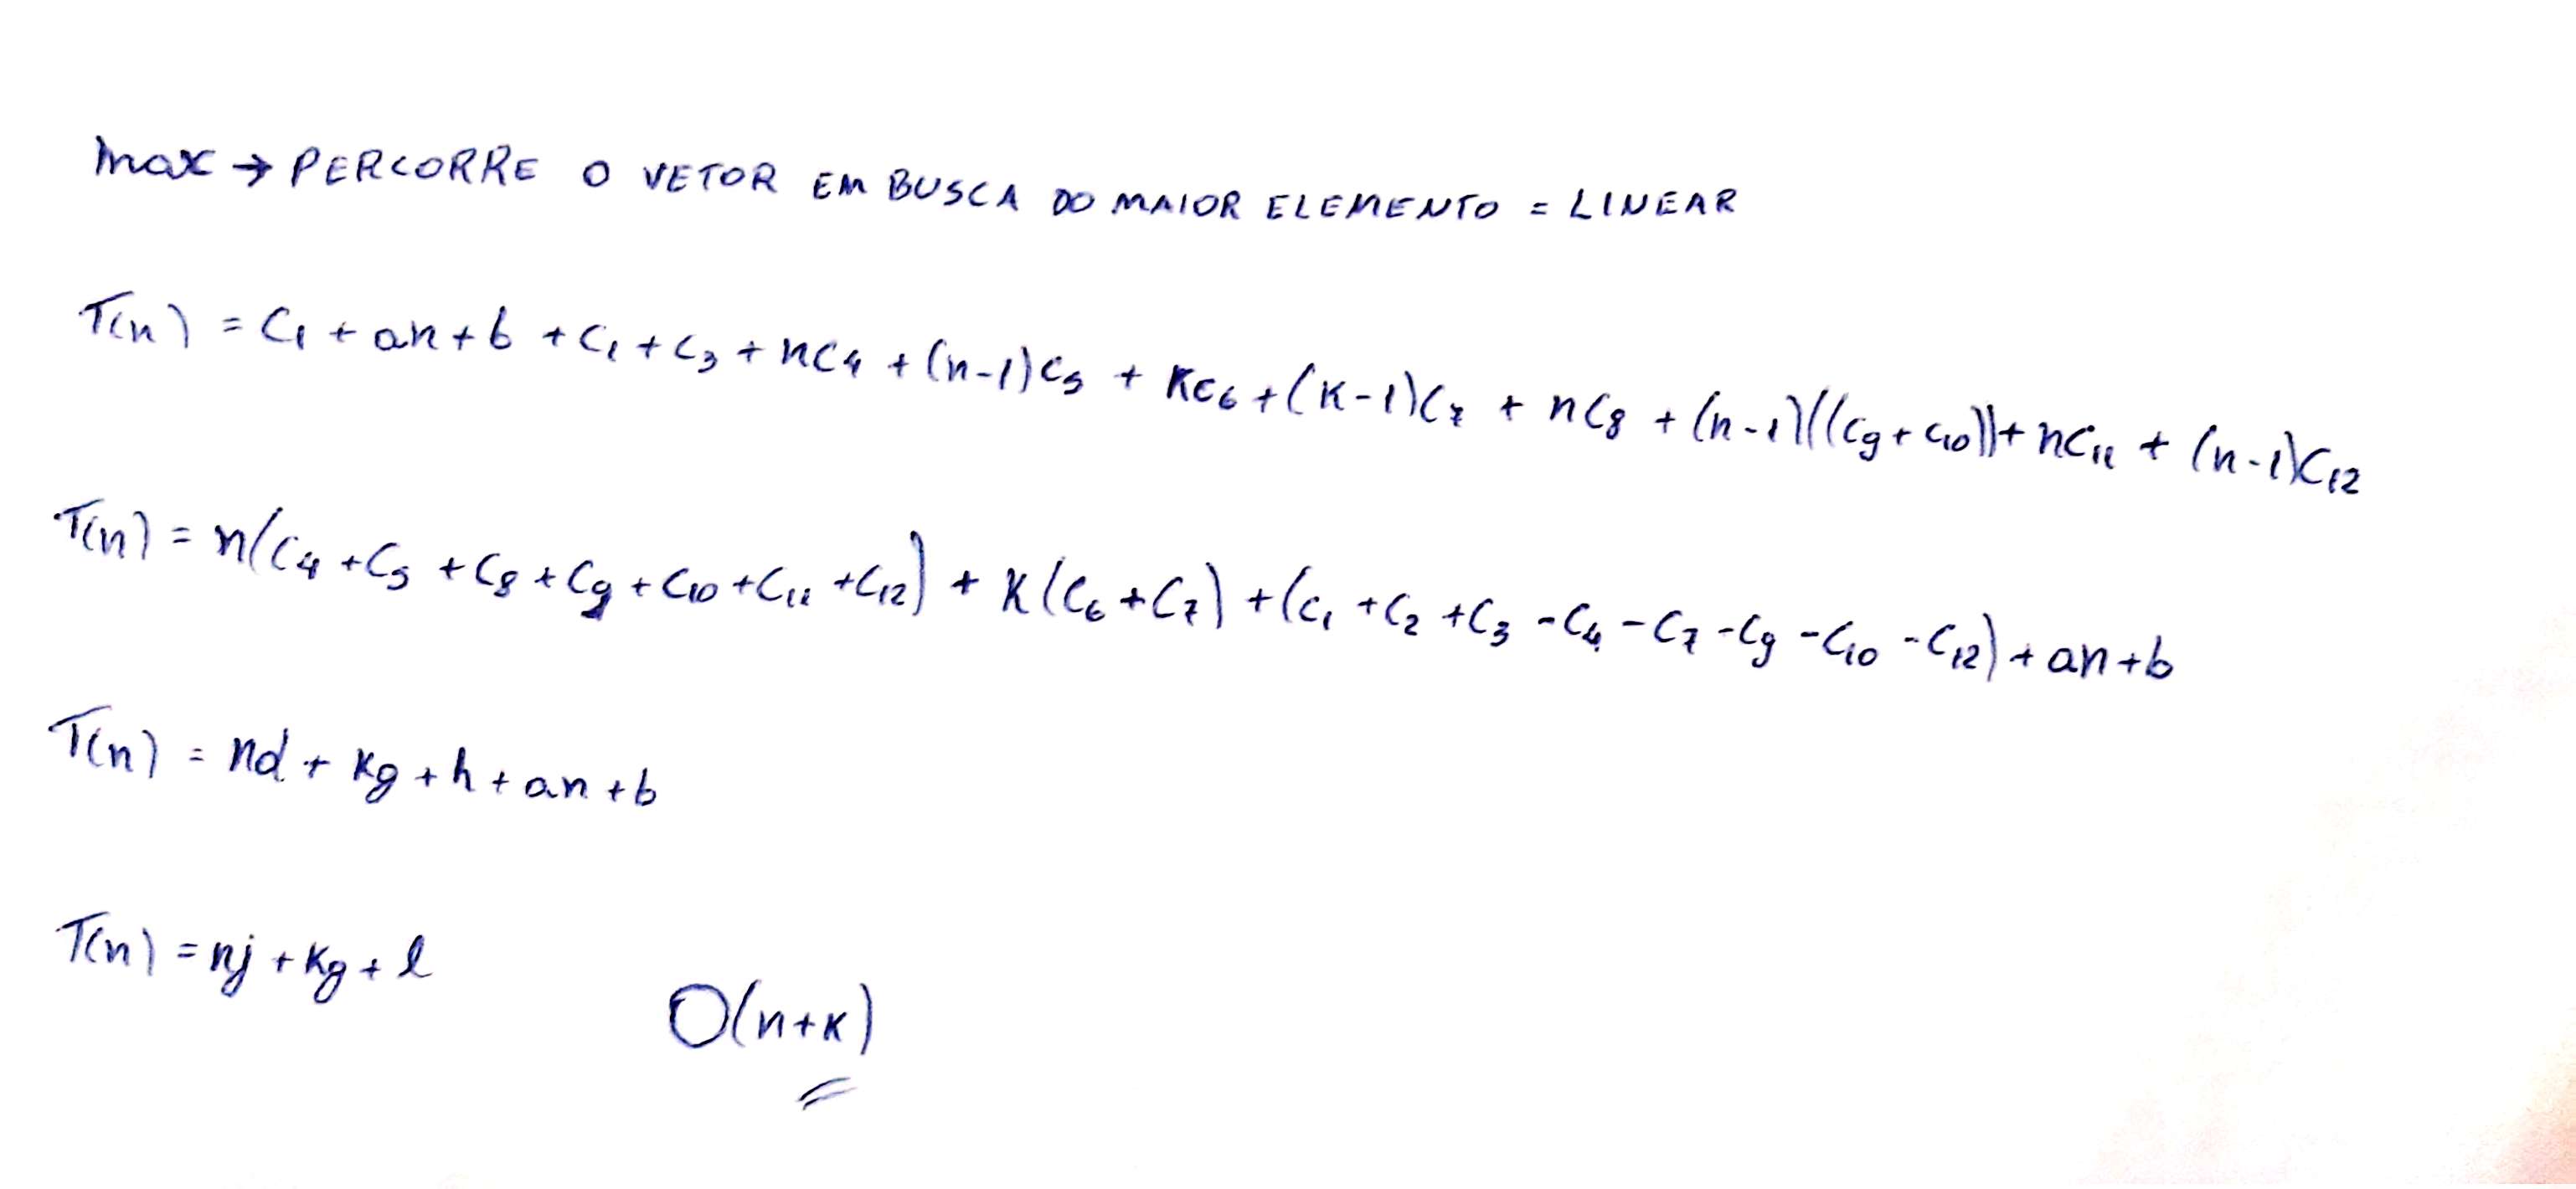 max → PERCORRE O VETOR EM BUSCA DO MAIOR ELEMENTO = LINEAR
T(n) = C₁ + an + b + C₁ + C₃ + nC₄ + (n-1)C₅ + KC₆ + (K-1)C₇ + nC₈ + (n-1)((C₉ + C₁₀)) + nC₁₁ + (n-1)C₁₂
T(n) = n(C₄ + C₅ + C₈ + C₉ + C₁₀ + C₁₁ + C₁₂) + K(C₆ + C₇) + (C₁ + C₂ + C₃ - C₄ - C₇ - C₉ - C₁₀ - C₁₂) + an + b
T(n) = nd + Kg + h + an + b
T(n) = nj + Kg + l
O(n+K)